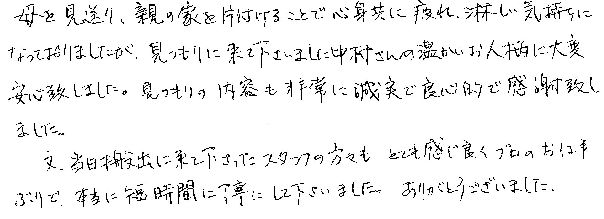 母を見送り、親の家を片付けることで心身共に疲れ、淋しい気持ちに
なっておりましたが、見つもりに来て下さいました中村さんの温かいお人柄に大変
安心致しました。見つもりの内容も非常に誠実で良心的で感謝致し
ました。
又、当日搬出に来て下さったスタッフの方々も とても感じ良くプロのお仕事
ぶりで、本当に短時間に丁寧にして下さいました。ありがとうございました。